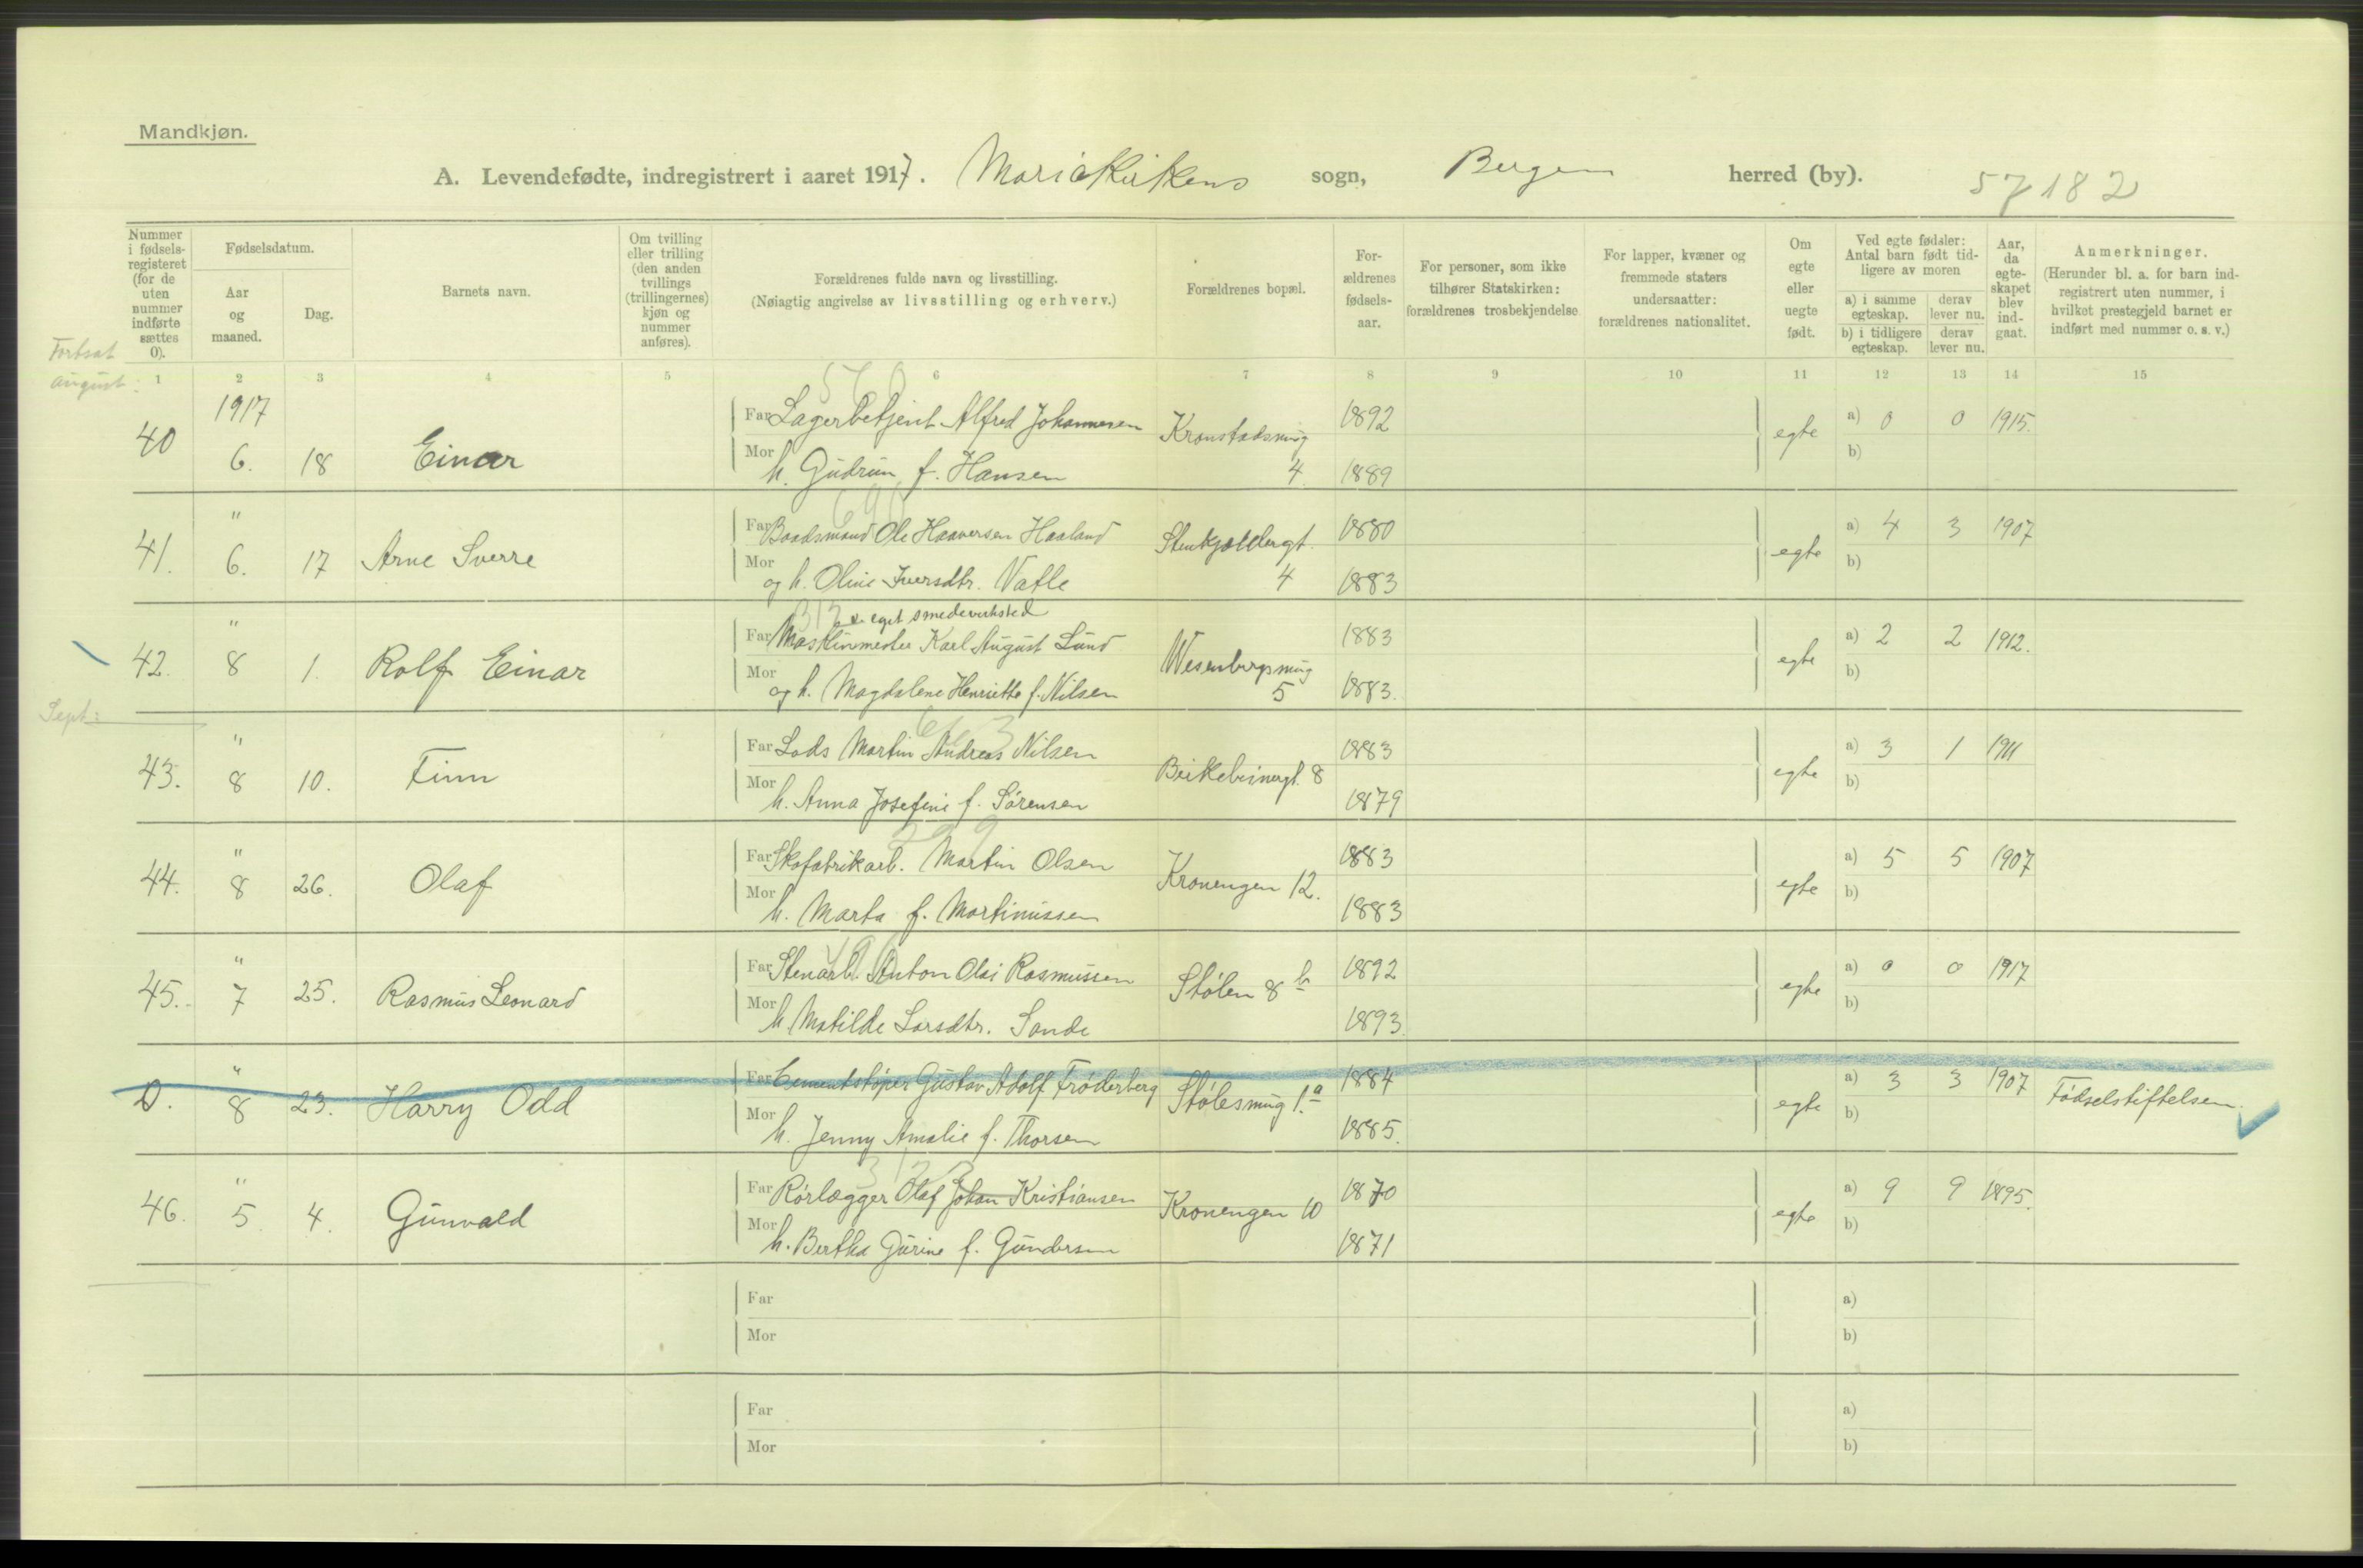 Mandkjøn.
A. Levendefødte, indregistrert i aaret 1917. Mariakirkens sogn, Bergen herred (by). 57182
Nummer i fødselsregisteret (for de uten nummer indførte sættes 0).
Fødselsdatum.
Aar og maaned.
Dag.
Barnets navn.
Om tvilling eller trilling (den anden tvillings (trillingernes) kjøn og nummer anføres).
Forældrenes fulde navn og livsstilling.
(Nøiagtig angivelse av livsstilling og erhverv.)
Forældrenes bopæl.
Forældrenes fødselsaar.
For personer, som ikke tilhører Statskirken: forældrenes trosbekjendelse
For lapper, kvæner og fremmede staters undersaatter: forældrenes nationalitet.
Om egte eller uegte født.
Ved egte fødsler: Antal barn født tidligere av moren
a) i samme egteskap. derav lever nu.
b) i tidligere egteskap. derav lever nu.
Aar, da egteskapet blev indgaat.
Anmerkninger.
(Herunder bl. a. for barn indregistrert uten nummer, i hvilket prestegjeld barnet er indført med nummer o. s. v.)
Fortsat
august:
1 2 3 4 5 6 7 8 9 10 11 12 13 14 15
1917
40 6. 18 Einar
Far Lagerbetjent Alfred Johannesen Kronstadsmug 4. 1892
Mor h. Gudrun f. Hansen 1889
egte a) 0 0 1915.
b)
41. " 6. 17 Arne Sverre
Far Baadsmand Ole Haaversen Haaland 4 1880
Mor og h. Oline Iversdtr. Vatle 1883
egte a) 4 3 1907
b)
eget smedeverksted
42. " 8 1. Rolf Einar
Far Maskinmester Karl August Lund Wesenbergsmug 5 1883
Mor og h. Magdalene Henriette f. Nilsen 1883.
egte a) 2 2 1912.
b)
Sept:
43. " 8 10. Finn
Far Lods Martin Andreas Nilsen 1883
Mor h. Anna Josefine f. Sørensen 1879
egte a) 3 1 1911
b)
44. " 8 26. Olaf
Far Skofabrikarb. Martin Olsen Kronengen 12. 1883
Mor h. Marta f. Martinussen 1883
egte a) 5 5 1907
b)
45. " 7 25. Rasmus Leonard
Far Stenarb. Anton Olai Rasmussen Stølen 8 b 1892
Mor h. Matilde Larsdtr. Sande 1893.
egte a) 0 0 1917
b)
0. " 8 23. Harry Odd
Far Cementstøper Gustav Adolf Frøderberg Stølesmug 1.a 1884
Mor h. Jenny Amalie f. Thorsen 1885.
egte a) 3 3 1907 Fødselstiftelsen.
b)
46. " 5. 4. Gunvald
Far Rørlægger Olaf Johan Kristiansen Kronengen 10 1870
Mor h. Bertha Gurine f. Gundersen 1871
egte a) 9 9 1895.
b)
Far a)
Mor b)
Far a)
Mor b)